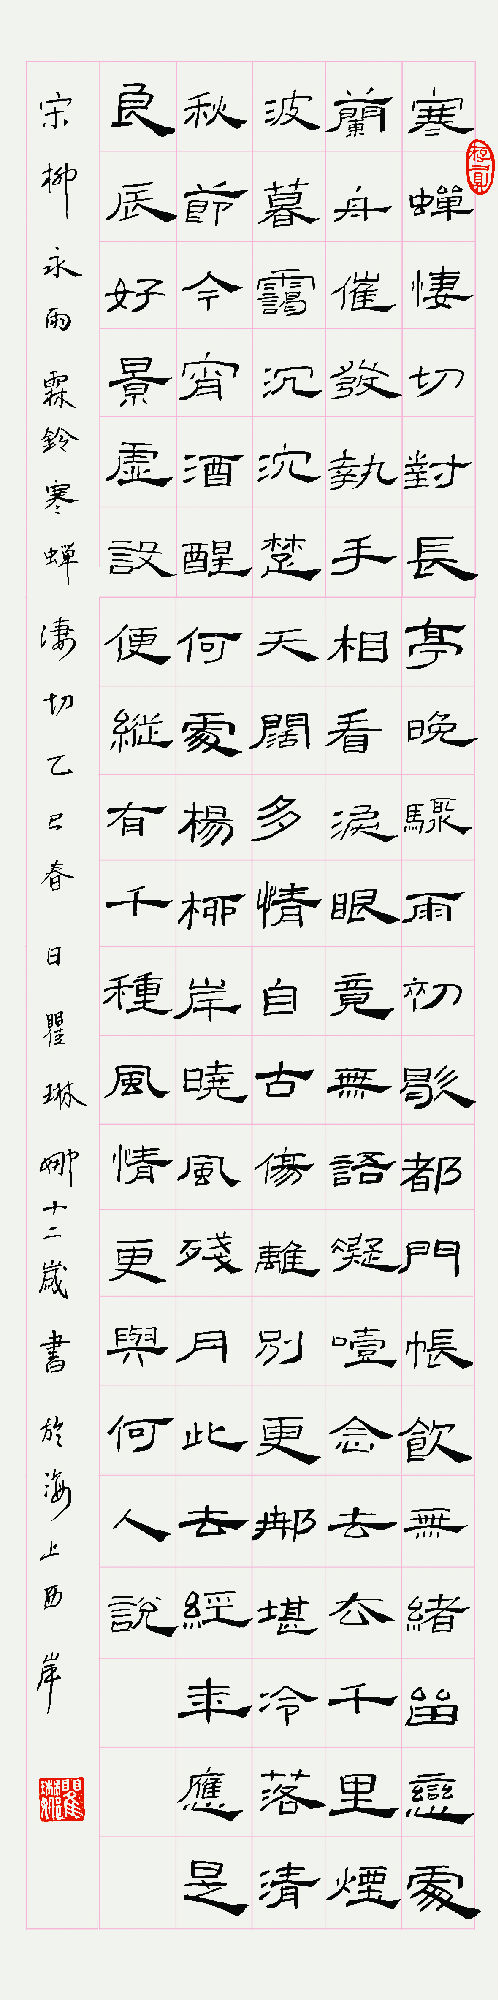 寒蟬悽切對長亭晚驟雨初歇都門帳飲無緒留戀處
蘭舟催發執手相看淚眼竟無語凝噎念去厺千里煙
波暮靄沉沉楚天闊多情自古傷離別更那堪冷落清
秋節今宵酒醒何處楊柳岸曉風殘月此去經年應是
良辰好景虛設便縱有千種風情更與何人說
宋柳永雨霖鈴寒蟬淒切乙巳春日瞿琳娜十二歲書於海上西岸